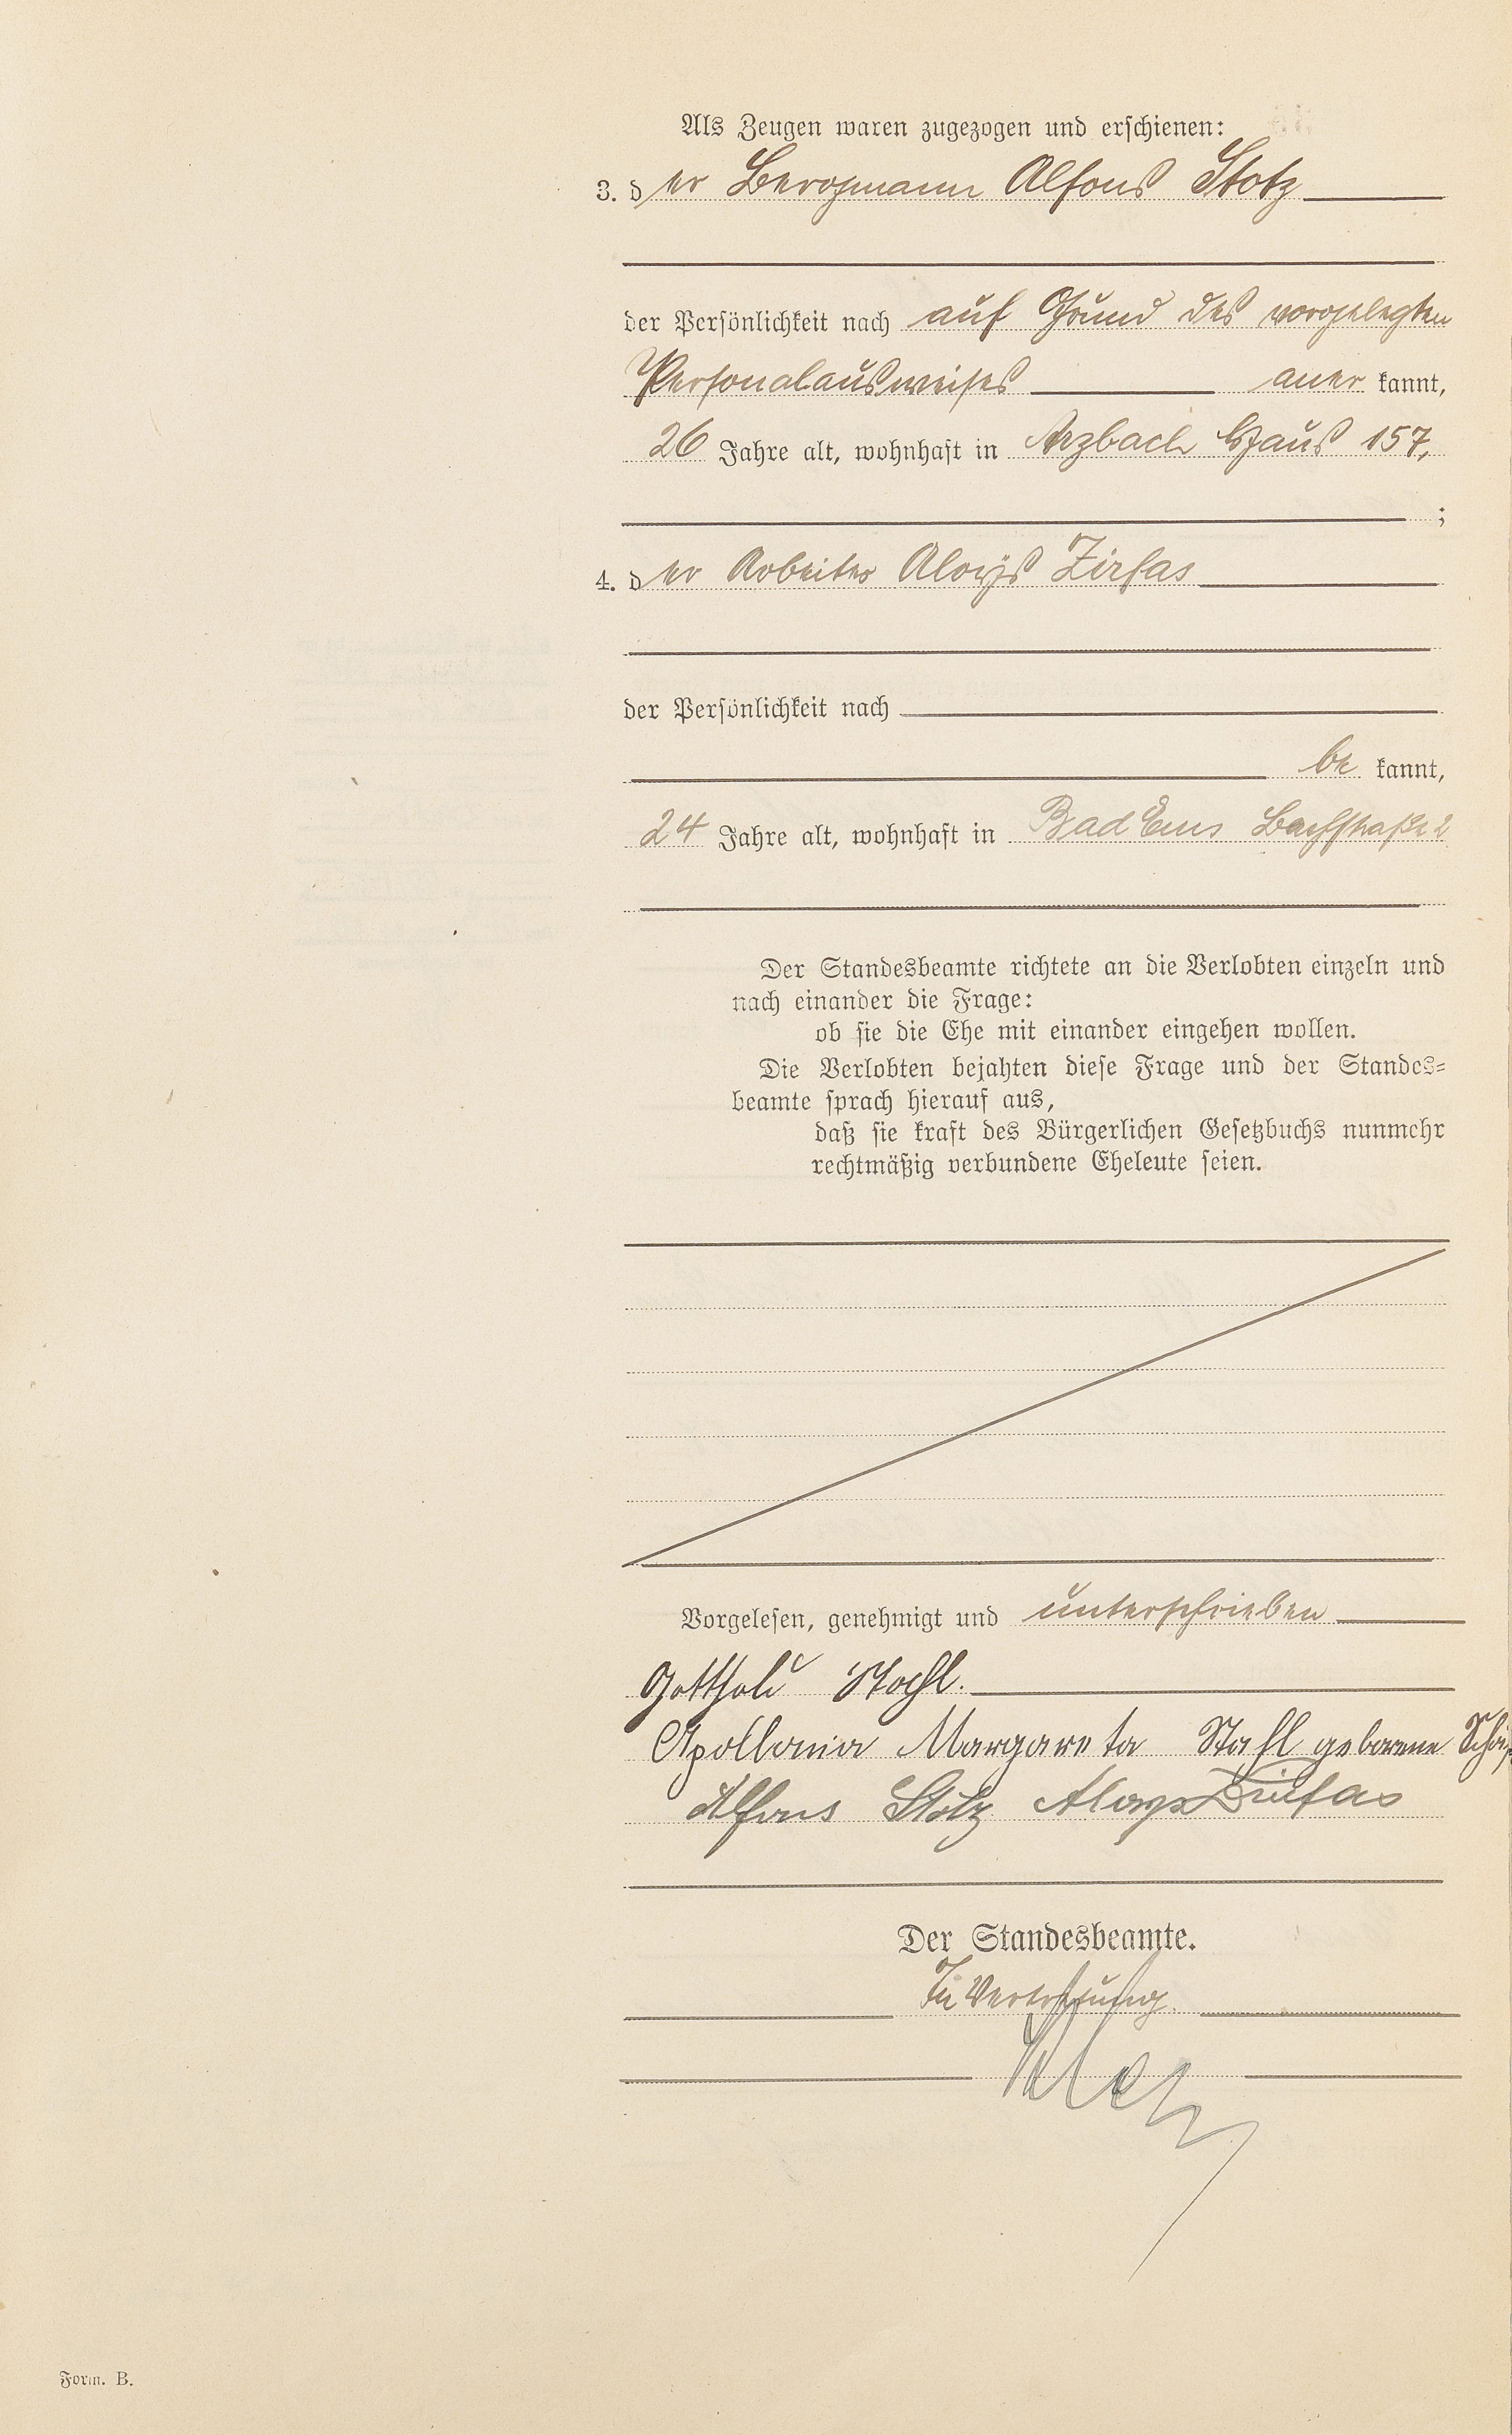 Als Zeugen waren zugezogen und erschienen:
3. der Bergmann Alfons Stotz
der Persönlichkeit nach auf Grund des vorgelegten
Personalausweises anerkannt,
26 Jahre alt, wohnhaft in Arzbach Haus 157,
;
4. der Arbeiter Aloÿs Zirfas
der Persönlichkeit nach
bekannt,
24 Jahre alt, wohnhaft in Bad Ems Bachstraße 2
Der Standesbeamte richtete an die Verlobten einzeln und
nach einander die Frage:
ob sie die Ehe mit einander eingehen wollen.
Die Verlobten bejahten diese Frage und der Standes-
beamte sprach hierauf aus,
daß sie kraft des Bürgerlichen Gesetzbuchs nunmehr
rechtmäßig verbundene Eheleute seien.
Vorgelesen, genehmigt und unterschrieben
Gotthold Stahl.
Apollonia Margareta Stahl geborene
Alfons Stotz Aloys Zirfas
Der Standesbeamte.
In Vertretung.
Form. B.